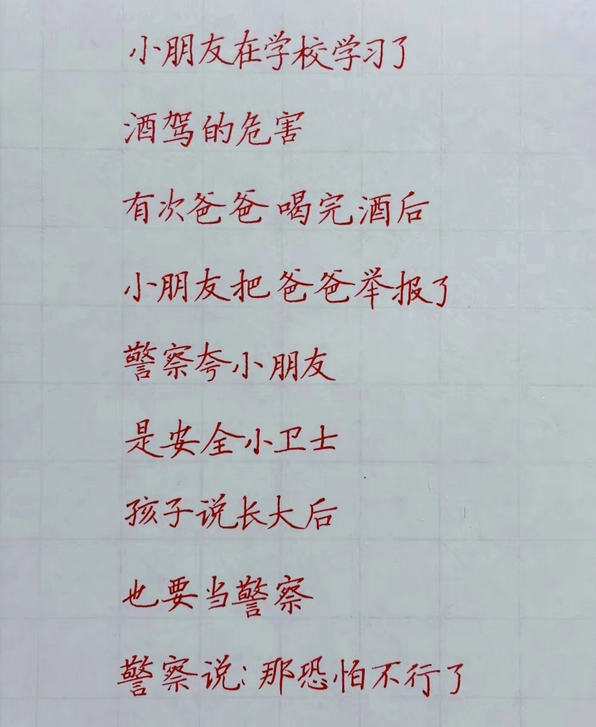 小朋友在学校学习了
酒驾的危害
有次爸爸喝完酒后
小朋友把爸爸举报了
警察夸小朋友
是安全小卫士
孩子说长大后
也要当警察
警察说:那恐怕不行了